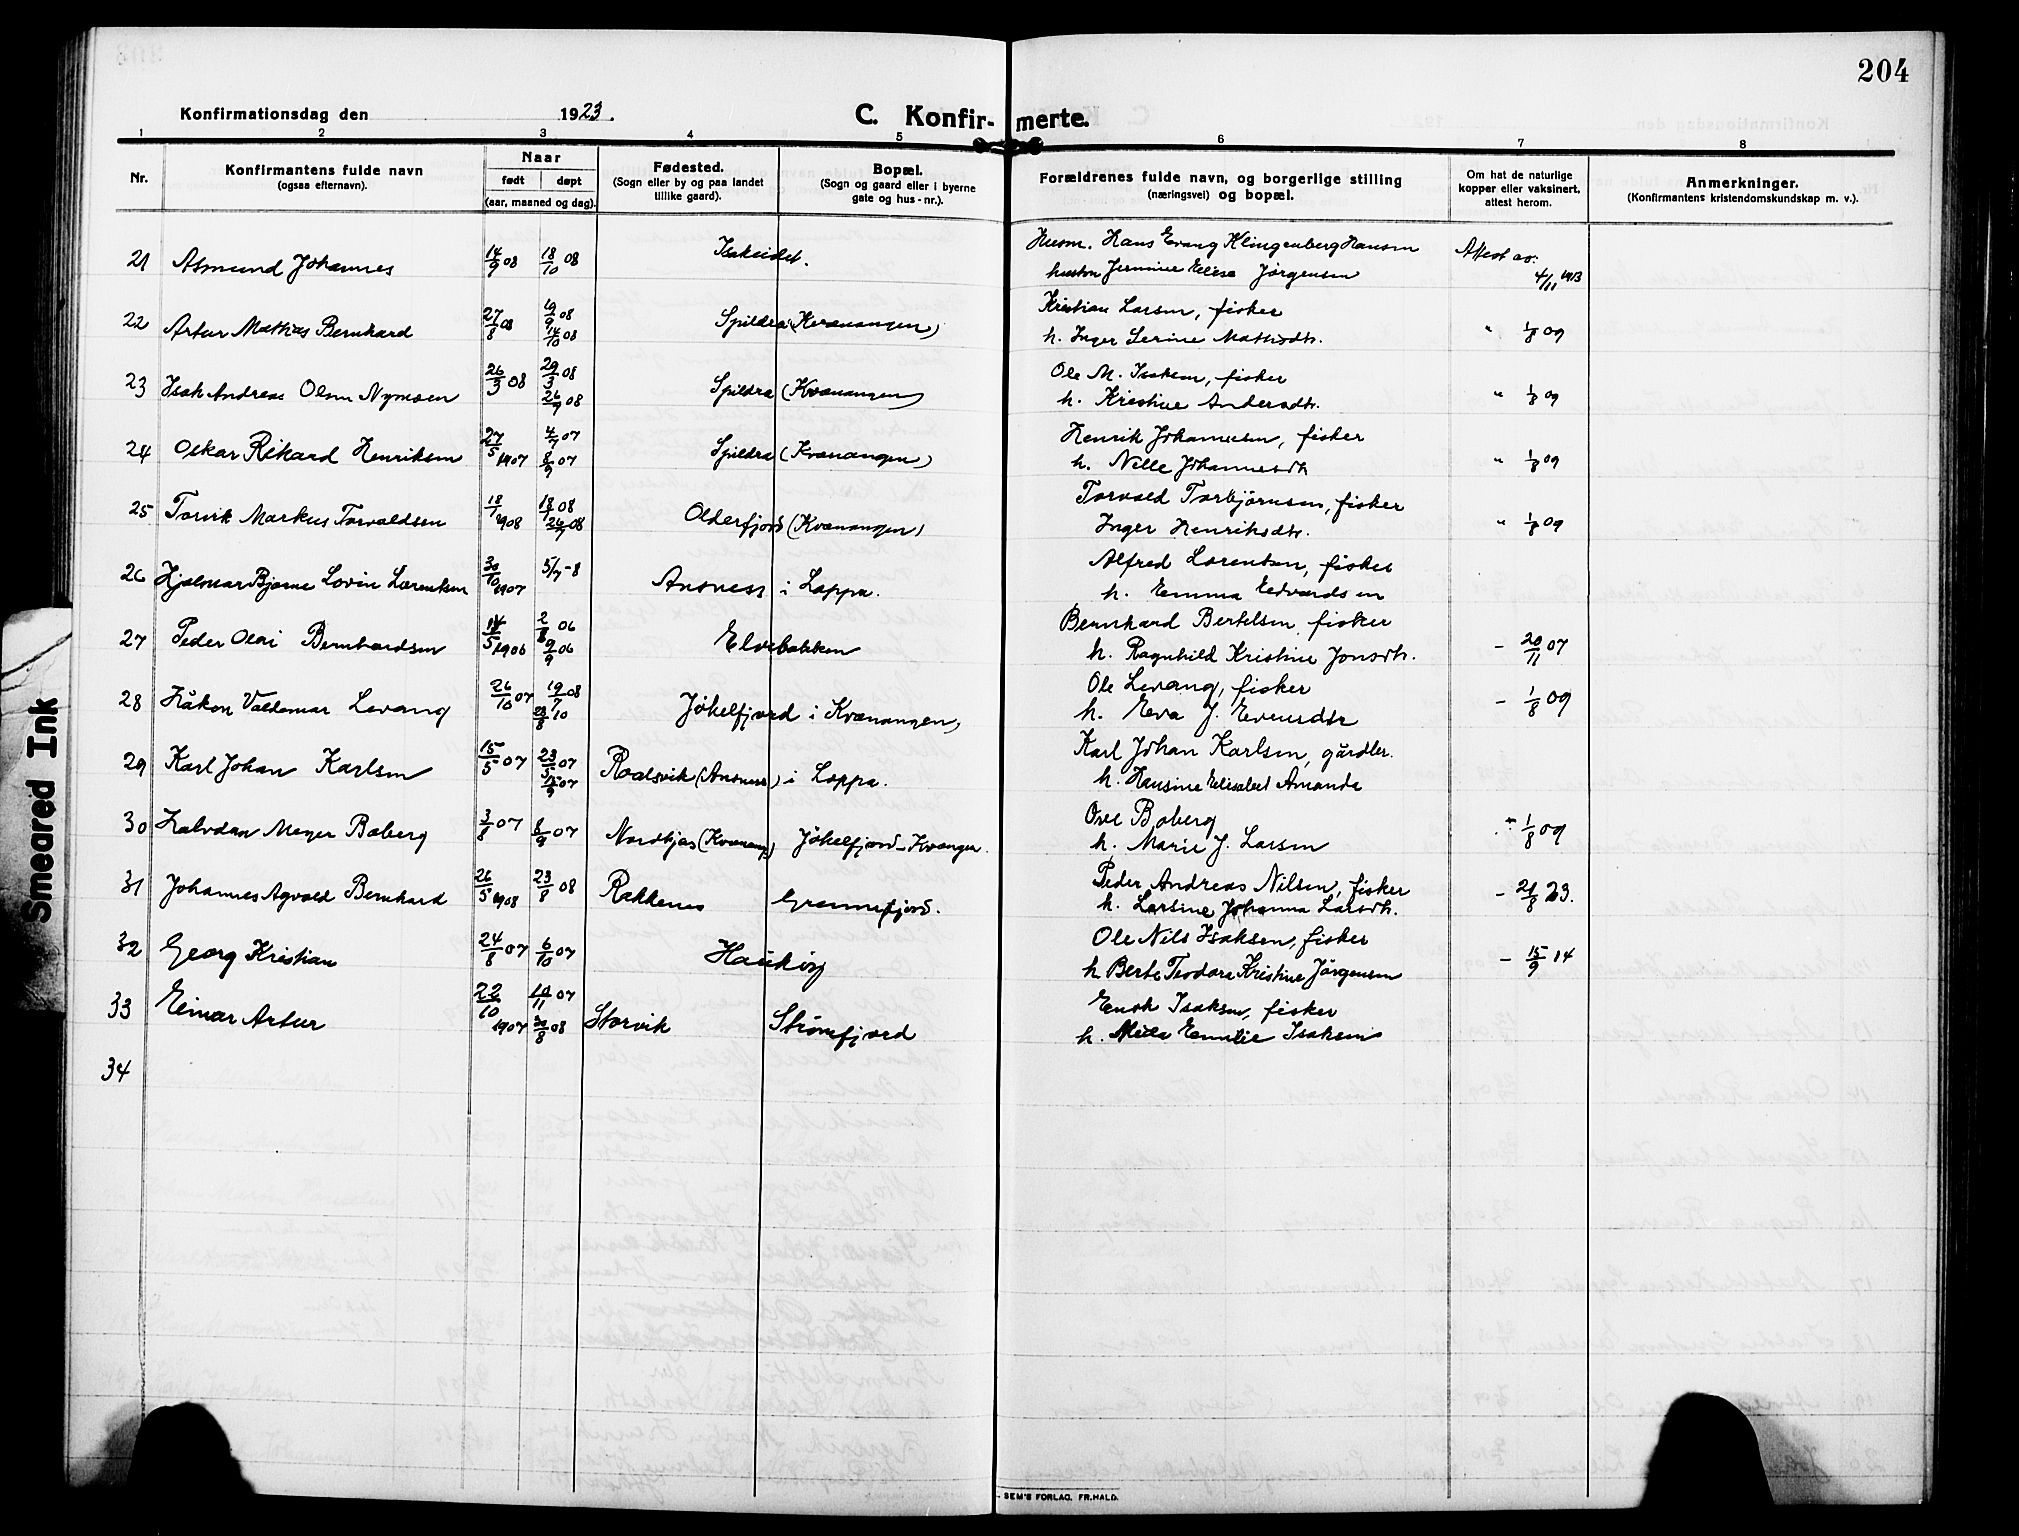 204
Konfirmationsdag den 1923.
C. Konfir- merte.
1 2 3 4 5 6 7 8
Nr.
Konfirmantens fulde navn
(ogsaa efternavn).
Naar
født døpt
(aar, maaned og dag).
Fødested.
(Sogn eller by og paa landet
tillike gaard).
Bopæl.
(Sogn og gaard eller i byerne
gate og hus-nr.).
Forældrenes fulde navn, og borgerlige stilling
(næringsvei) og bopæl.
Om hat de naturlige
kopper eller vaksinert,
attest herom.
Anmerkninger.
(Konfirmantens kristendomskundskap m. v.).
21 Asmund Johannes 14/9 08 18/10 08 Isakeidet.
Husm. Hans Evang Klingenberg Hansen
hustru Jermine Elise Jørgensen
Attest av: 4/11 1913
22 Artur Mathias Bernhard 27/8 08 19/9 08 14/10 08 Spildra (Kvænangen)
Kristian Larsen, fisker
h. Inger Serine Mathisdtr. " 1/8 09
23 Isak Andreas Olsen Nymoen 26/3 08 29/3 08 26/9 08 Spildra (Kvænangen)
Ole M. Isaksen, fisker
h. Kristine Andersdtr. " 1/8 09
24 Oskar Rikard Henriksen 27/5 1907 4/7 07 8/9 07 Spildra (Kvænangen)
Henrik Johannesen, fisker
h. Nille Johannesdtr " 1/8 09
25 Torvik Markus Torvaldsen 18/1 1908 18/1 08 26/7 08 Olderfjord (Kvænangen)
Torvald Torbjørnsen, fisker
Inger Henriksdtr. " 1/8 09
26 Hjalmar Bjarne Lovin Lorentsen 30/10 1907 5/7-8 Ansness i Loppa.
Alfred Lorentsen, fisker
h. Emma Edvardsen
27 Peder Olai Bernhardsen 14/5 1906 2/8 06 9/9 06 Elvebakken
Bernhard Bertelsen, fisker
h. Ragnhild Kristine Jonsdtr. - 20/11 07
28 Håkon Valdemar Levang 26/10 07 19/7 08 28/8 10 Jøkelfjord i Kvænangen,
Ole Levang, fisker
h. Eva J. Evensdtr - 1/8 09
29 Karl Johan Karlsen 15/5 07 23/5 07 15/9 07 Roalsvik (Ansness) i Loppa.
Karl Johan Karlsen, gårdbr.
h. Hansine Elisabet Amanda
30 Halvdan Meyer Boberg 3/8 07 8/9 07 Nordkjos (Kvænang) Jøkelfjord - Kvænangen.
Ove Boberg
h. Marie J. Larsen " 1/8 09
31 Johannes Agvald Bernhard 26/5 1908 23/8 08 Rakkenes Grannefjord.
Peder Andreas Nilsen, fisker
h. Larsine Johanna Larsdtr. - 21/8 23.
32 Georg Kristian 24/8 07 6/10 07 Haukøy
Ole Nils Isaksen, fisker
h Berte Teodora Kristine Jørgensen - 15/9 14
33 Einar Artur 22/10 1907 10/11 07 30/8 08 Storvik Strømfjord
Enok Isaksen, fisker
h. Mila Emilie Isaksen
34
SEM'S FORLAG, FR.HALD.
Smeared Ink